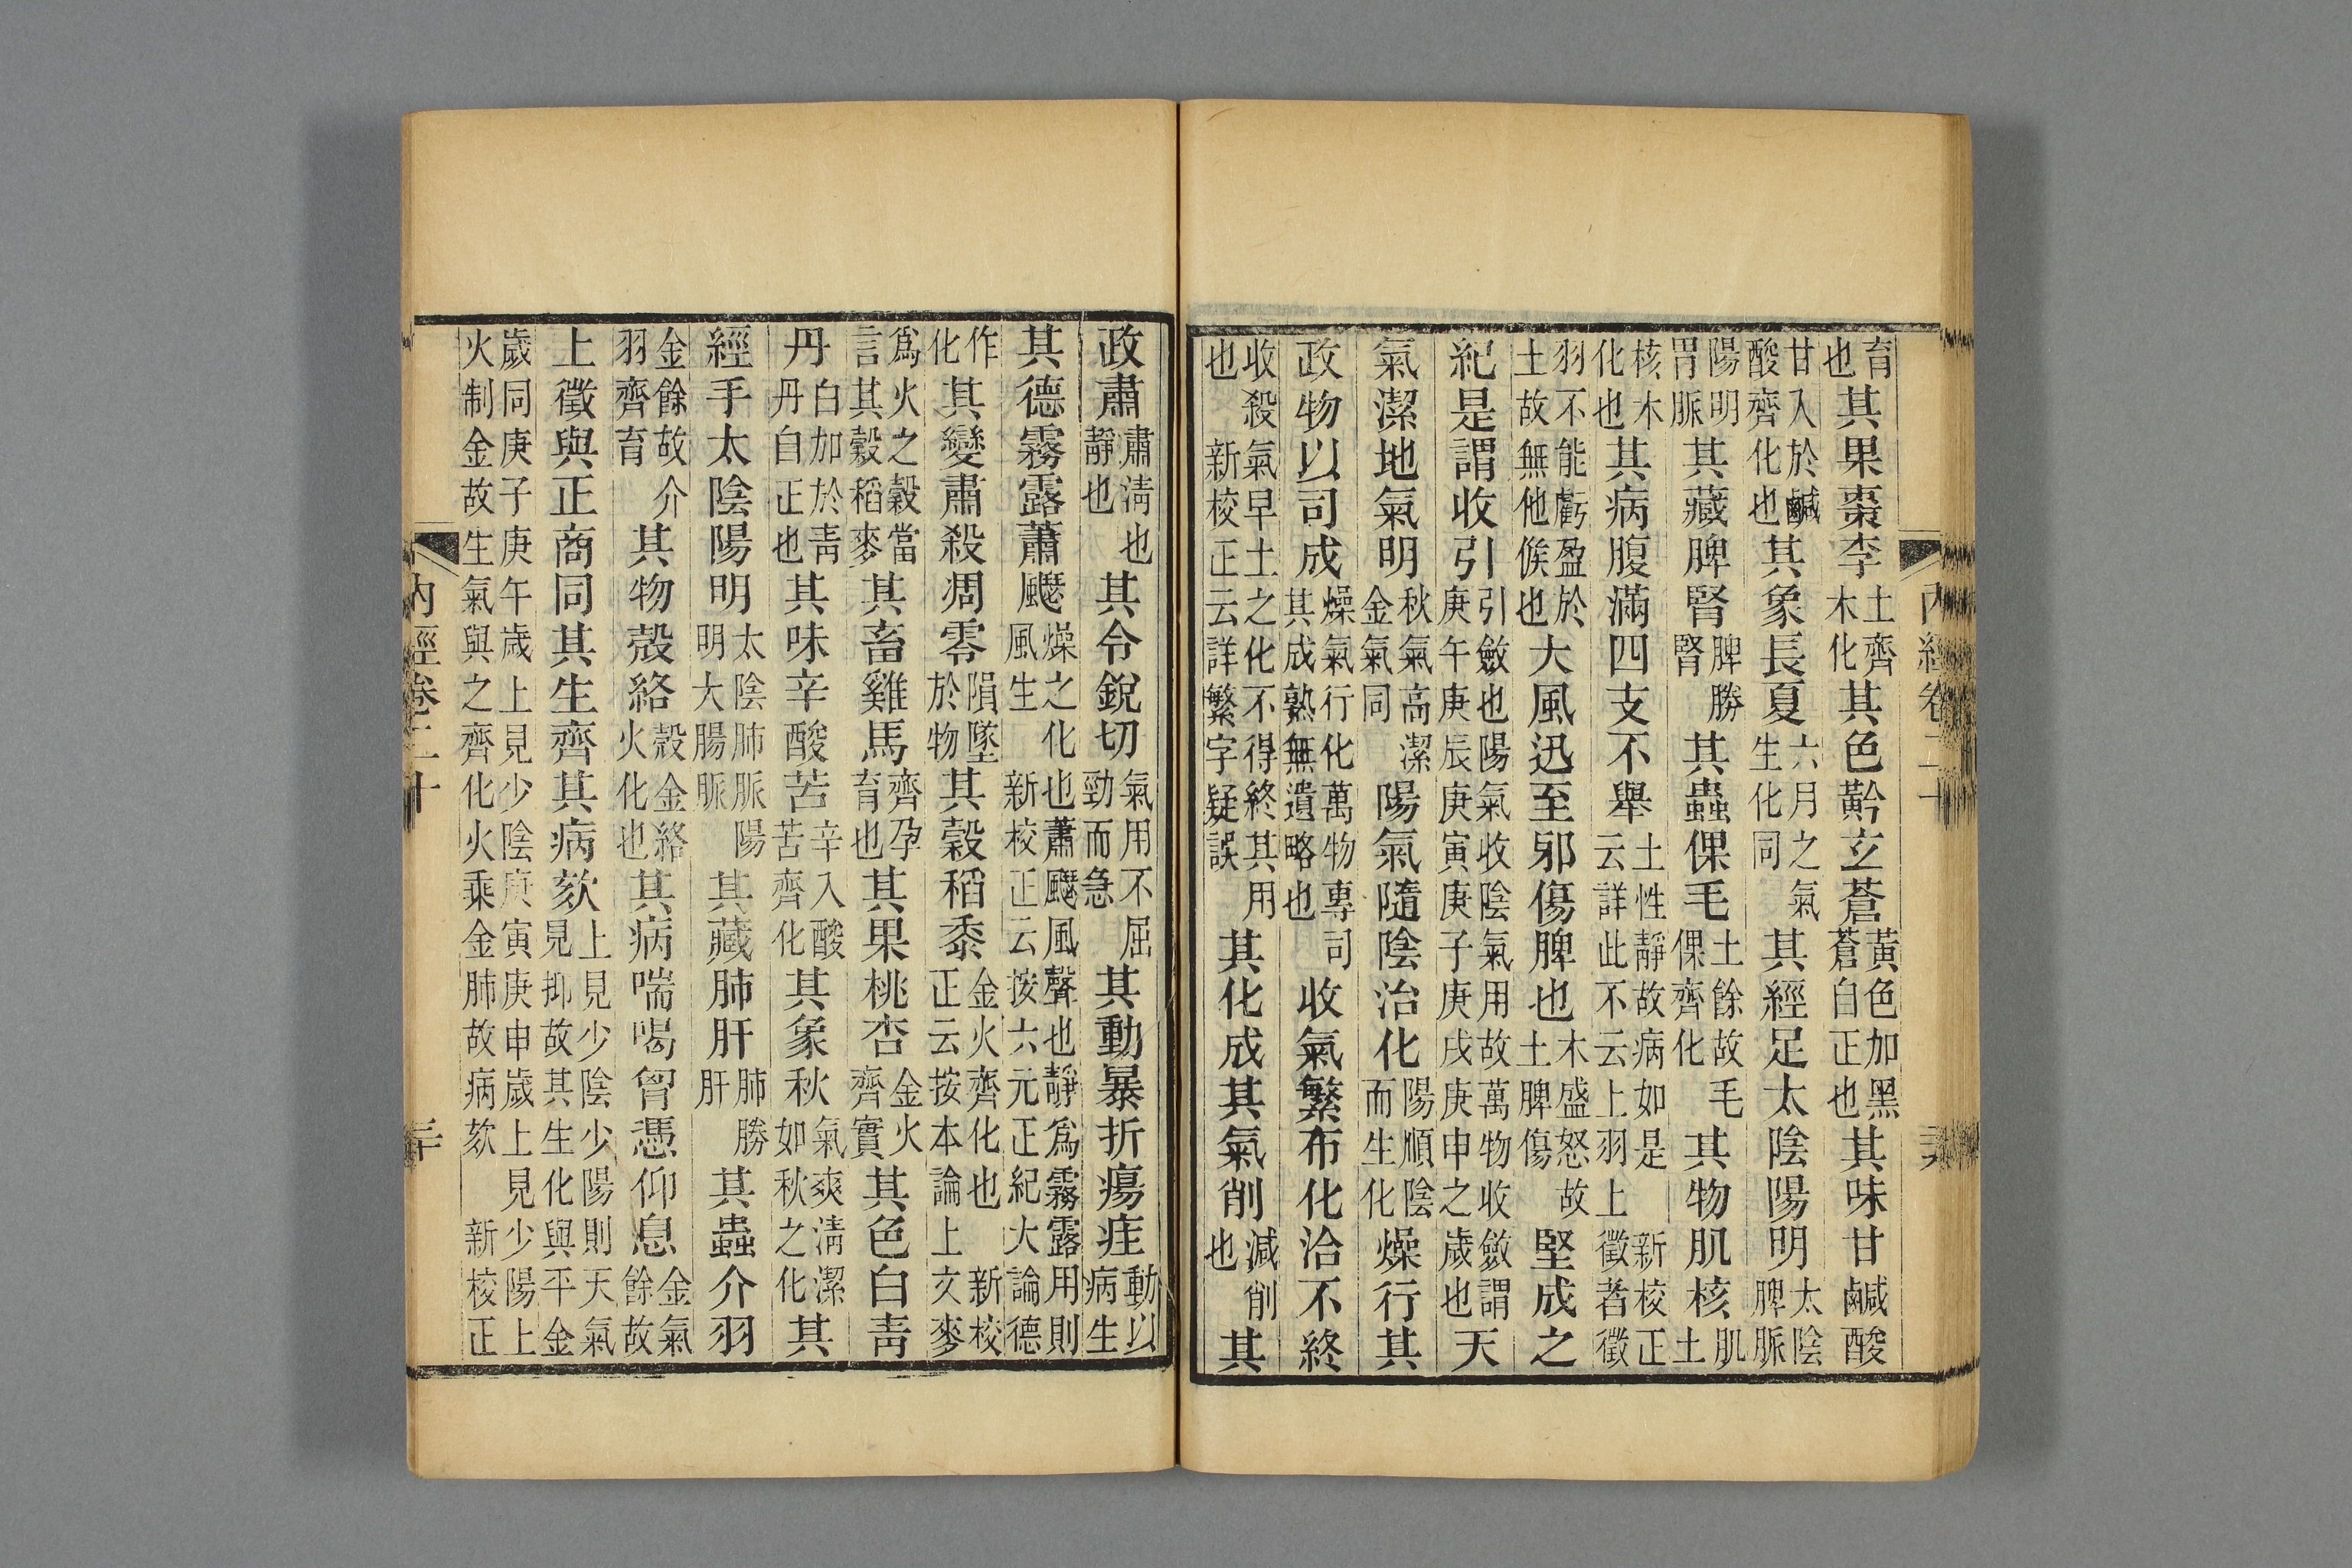 內經卷二十
育也其果棗李土齊木化其色黅玄蒼黃色加黑蒼自正也其味甘鹹酸
甘入於鹹酸齊化也其象長夏六月之氣生化同其經足太陰陽明太陰脾脈
陽明胃脈其藏脾腎脾勝腎其蟲倮毛土餘故毛倮齊化其物肌核肌土
核木化也其病腹滿四支不舉土性靜故病如是新校正云詳此不云上羽上徵者徵
羽不能虧盈於土故無他候也大風迅至邪傷脾也木盛怒故土脾傷堅成之
紀是謂收引引斂也陽氣收陰氣用故萬物收斂謂庚午庚辰庚寅庚子庚戌庚申之歲也天
氣潔地氣明秋氣高潔金氣同陽氣隨陰治化陽順陰而生化燥行其
政物以司成燥氣行化萬物專司其成熟無遺略也收氣繁布化洽不終
收殺氣早土之化不得終其用也新校正云詳繁字疑誤其化成其氣削減削也其
政肅肅清也靜也其令銳切氣用不屈勁而急其動暴折瘍疰動以病生
其德霧露蕭飋燥之化也蕭飋風聲也靜爲霧露用則風生新校正云按六元正紀大論德
作化其變肅殺凋零隕墜於物其穀稻黍金火齊化也新校正云按本論上文麥
爲火之穀當言其穀稻麥其畜雞馬齊孕育也其果桃杏金火齊實其色白靑
丹白加於靑丹自正也其味辛酸苦辛入酸苦齊化其象秋氣爽清潔如秋之化其
經手太陰陽明太陰肺脈陽明大腸脈其藏肺肝肺勝肝其蟲介羽
金餘故介羽齊育其物殼絡殼金絡火化也其病喘喝胷憑仰息金氣餘故
上徵與正商同其生齊其病欬上見少陰少陽則天氣見抑故其生化與平金
歲同庚子庚午歲上見少陰庚寅庚申歲上見少陽上火制金故生氣與之齊化火乘金肺故病欬新校正
內經卷二十 三十